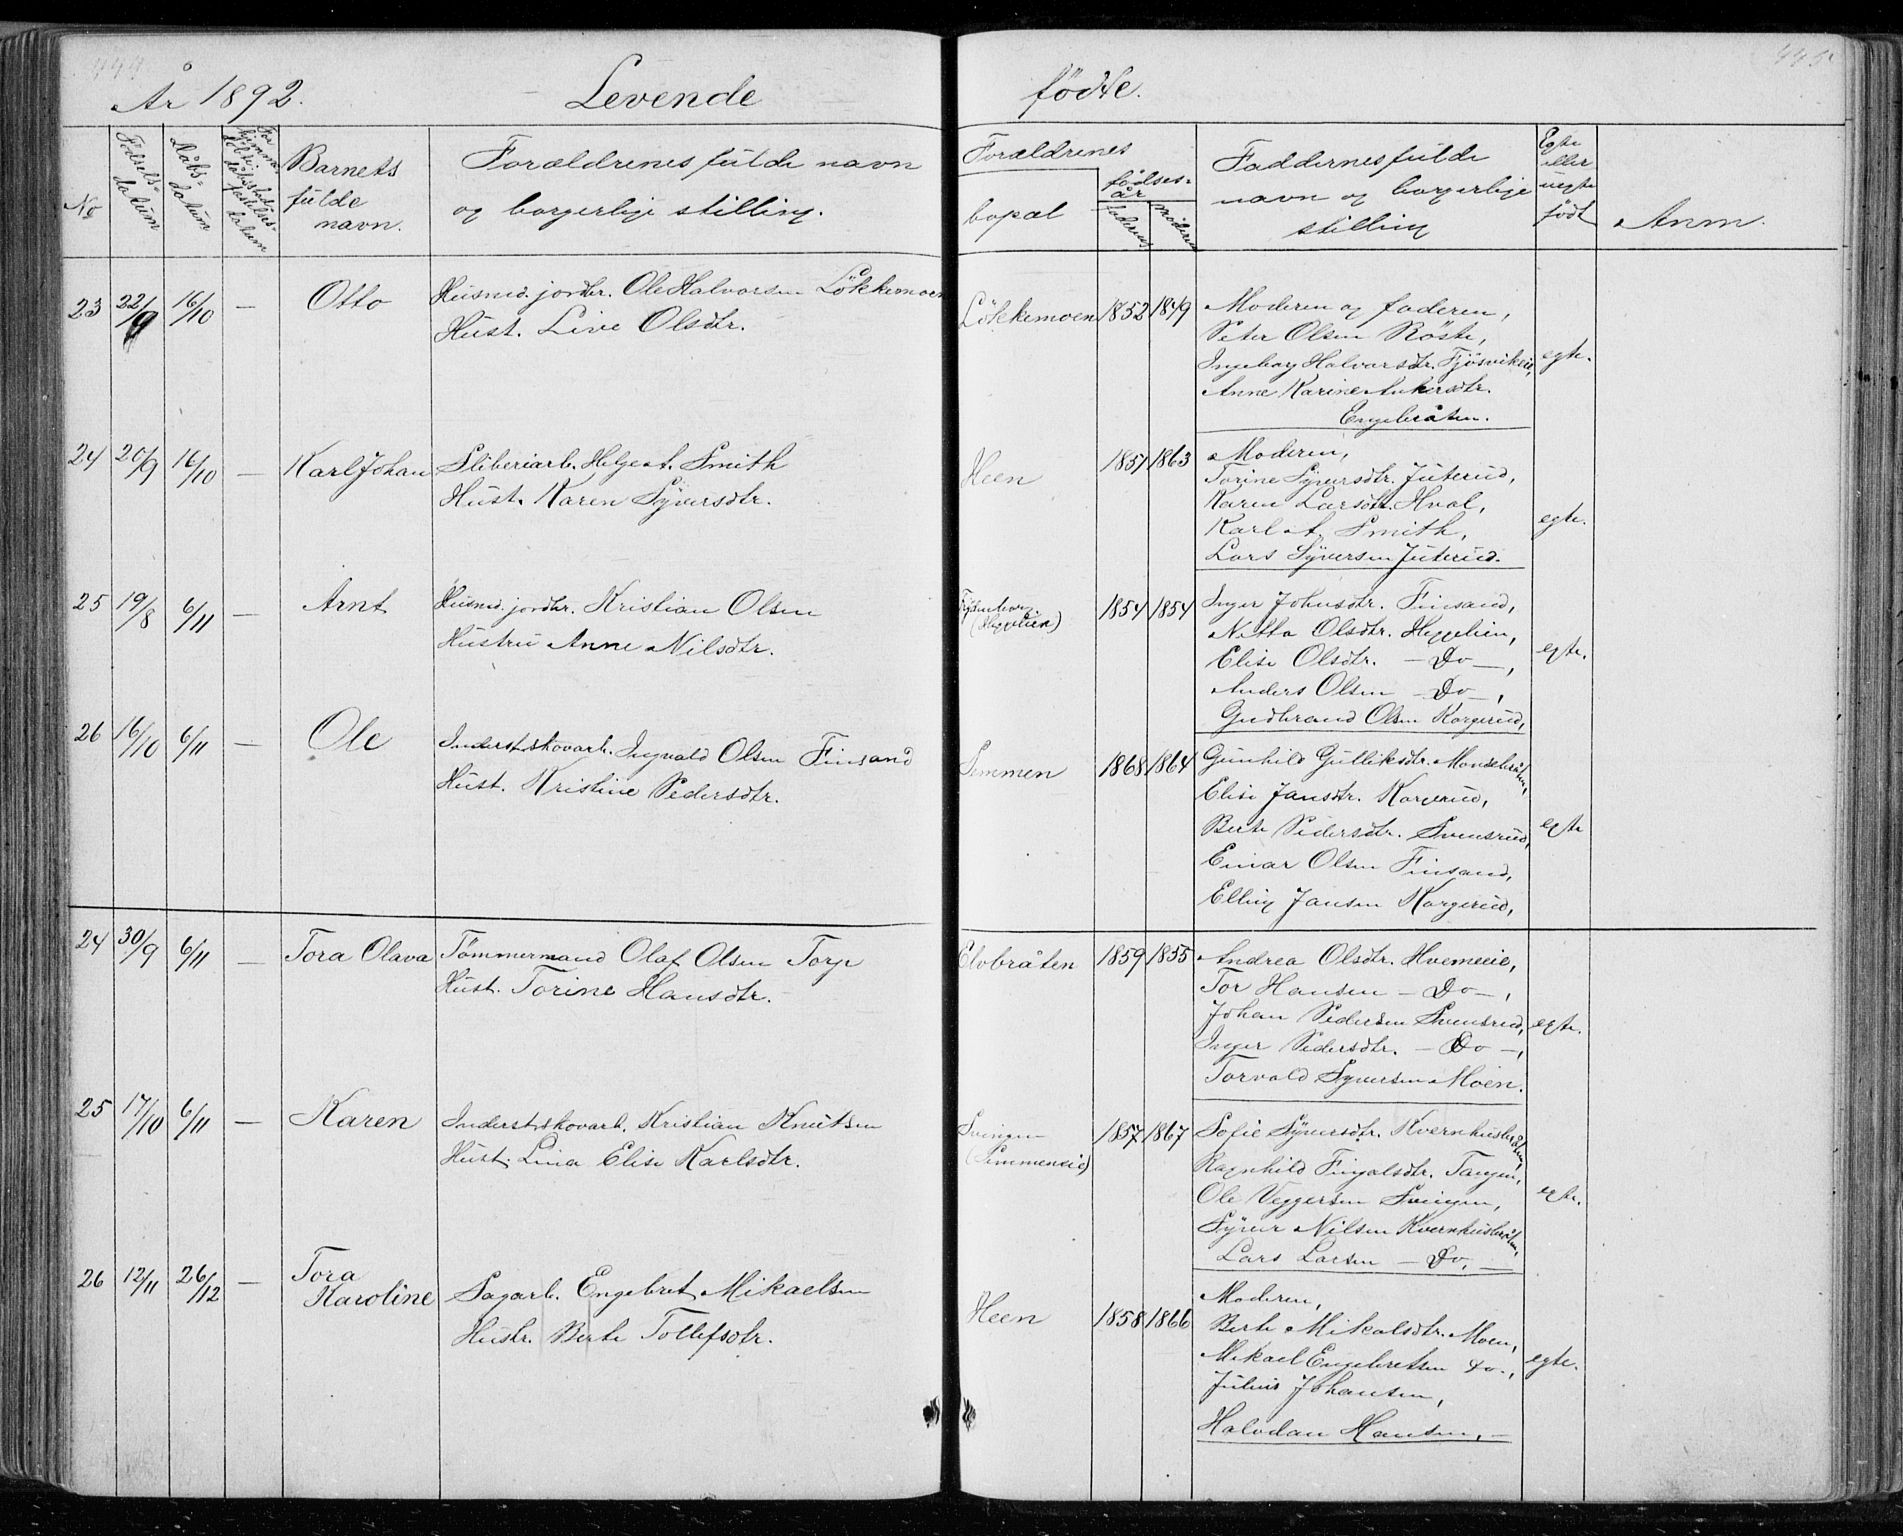 444
445
År 1892.
Levende
fødte.
No
Fødsels-
datum
Dåbs-
datum
Barnets
fulde
navn.
Forældrenes fulde navn
og borgerlige stilling.
Forældrenes
bopæl
fødses-
år
faderens
moderens
Faddernes fulde
navn og borgerlige
stilling
Egte
eller
uegte
født
Anm.
23 22/9 16/10 — Otto
Husmd. jordbr. Ole Halvorsen Løkkemoen
Hust. Live Olsdtr.
Løkkemoen 1852 1849
Moderen og faderen,
Peter Olsen Røste,
Ingeborg Halvorsdtr. Fjøsvikeie,
Anne Karine Ankersdtr.
Engebråten.
egte.
24 20/9 16/10 — Karl Johan
Sliberiarb. Helge A. Smith
Hust. Karen Syversdtr.
Heen 1851 1863
Moderen,
Torine Syversdtr. Juterud,
Karen Larsdtr. Hval,
Karl A. Smith,
Lars Syversen Juterud.
egte.
25 19/8 6/11 — Arnt
Husmd. jordbr. Kristian Olsen
Hustru Anne Nilsdtr.
(Heggelien) 1854 1854
Inger Johnsdtr. Finsand,
Nitta Olsdtr. Heggelien,
Elise Olsdtr. — Do —,
Anders Olsen — Do —,
Gudbrand Olsen Korgerud,
egte.
26 16/10 6/11 — Ole
Inderst skovarb. Ingvald Olsen Finsand
Hust. Kristine Pedersdtr.
Semmen 1868 1864
Gunhild Gulliksdtr. Mandebråten,
Elise Jansdtr. Korgerud,
Berte Pedersdtr. Svensrud,
Einar Olsen Finsand,
Elling Jansen Korgerud,
egte
24 30/9 6/11 — Tora Olava
Tømmermand Olaf Olsen Torp
Hust. Torine Hansdtr.
Elvbråten 1859 1855
Andrea Olsdtr. Hvemeie,
Tor Hansen — Do —,
Johan Pedersen Svensrud,
Inger Pedersdtr. — Do —,
Torvald Syversen Moen.
egte.
25 17/10 6/11 — Karen
Inderst skovarb. Kristian Knutsen
Hust. Lina Elise Karlsdtr.
Svingen
(Semmeneie) 1857 1867
Sofie Syversdtr. Kvernhusbråten,
Ragnhild Fingalsdtr. Tangen,
Ole Veggersen Svingen,
Syver Nilsen Kvernhusbråten,
Lars Larsen — Do. —
egte.
26 12/11 26/12 — Tora
Karoline
Sagarb. Engebret Mikaelsen
Hustr. Berte Tollefsdtr.
Heen 1858 1866
Moderen,
Berte Mikalsdtr. Moen,
Mikael Engebretsen do.,
Julius Johansen,
Halvdan Hansen, —
egte.